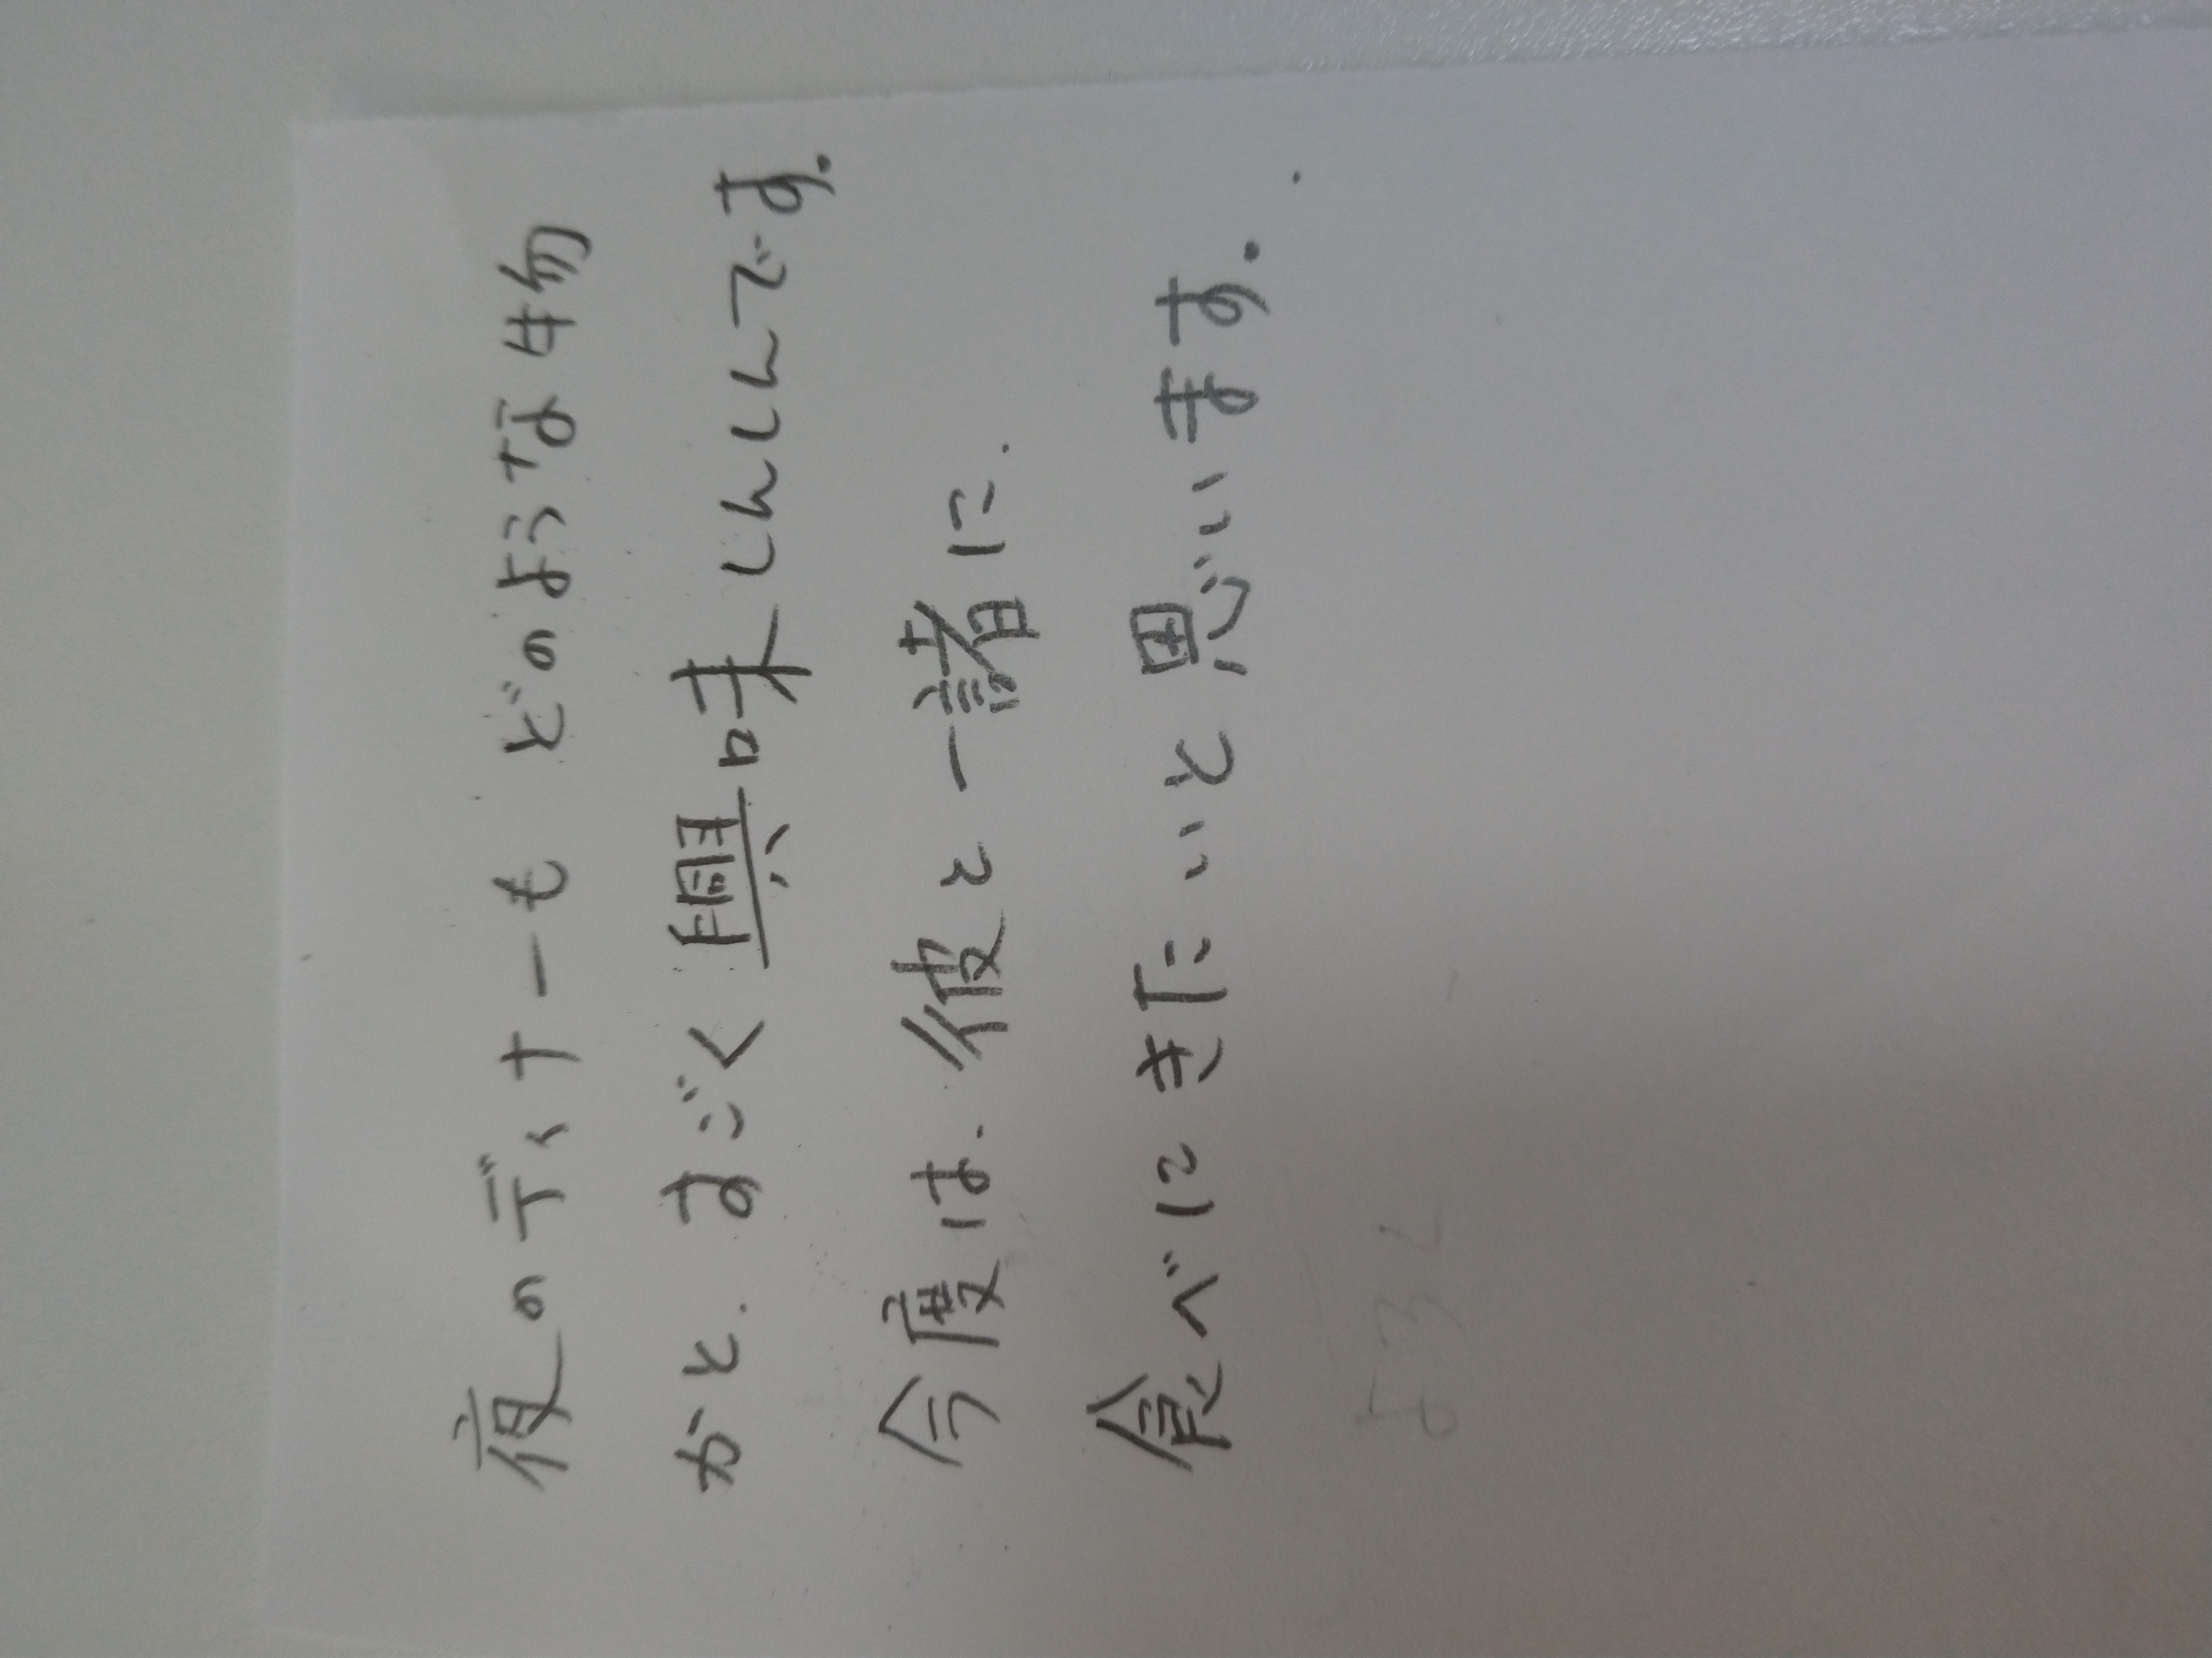 夜のディナーもどのような物
かと.すごく興味しんしんです.
今度は.彼と一緒に.
食べにきたいと思います.